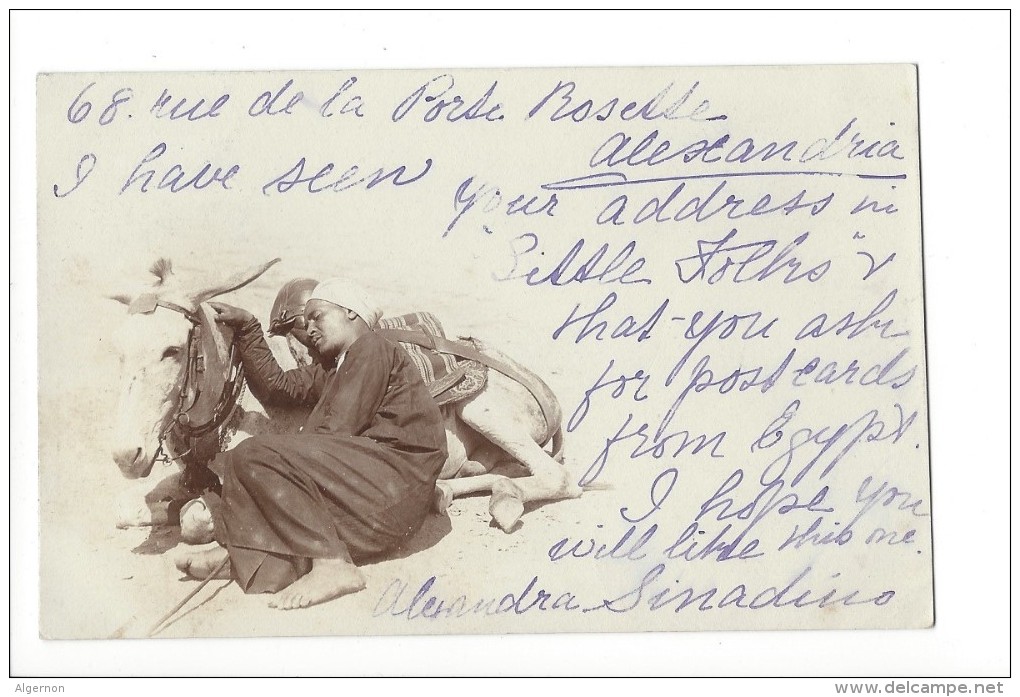 68. rue de la Porte Rosette
Alexandria
I have seen
your address in
"Little Folks" &
that you ask
for postcards
from Egypt.
I hope you
will like this one.
Alexandra Sinadino
Algernon
www.delcampe.net